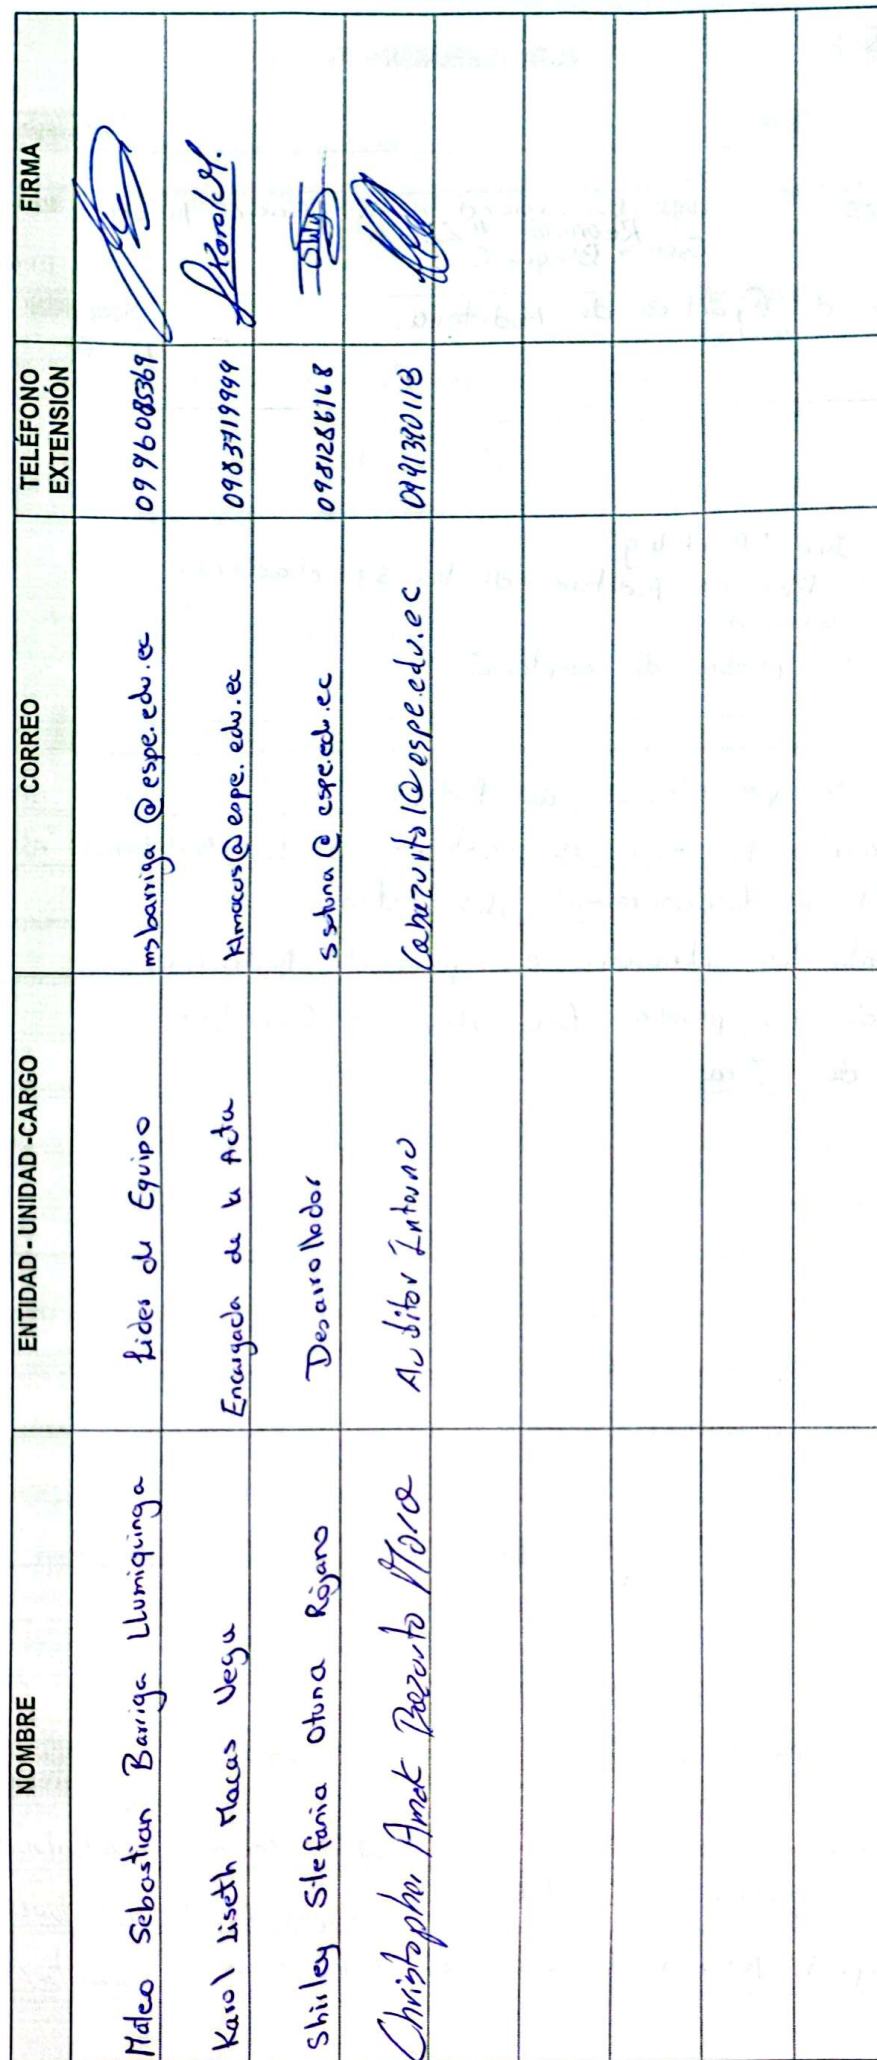 NOMBRE ENTIDAD - UNIDAD -CARGO CORREO TELÉFONO EXTENSIÓN FIRMA
Mateo Sebastian Barriga Llumiquinga Lider de Equipo msbarriga@espe.edu.ec 0996085369
Karol Liseth Macas Vega Encargada de la Acta klmacas@espe.edu.ec 0983719999 KarolM.
Shirley Stefania Otuna Rojano Desarrollador ssotuna@espe.edu.ec 0981286168
Christopher Bazurto Auditor Interno cabazurto1@espe.edu.ec